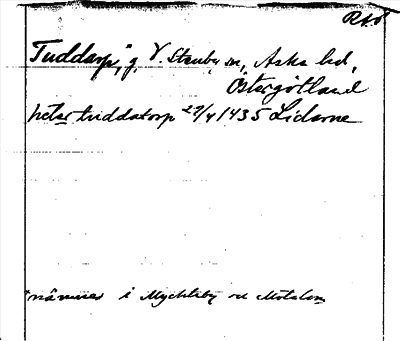 RAÖ
Tuddarp, g, V. Stenby sn, Aska hd,
Östergötland
petar tuddatorp 29/4 1435 Lidarne
*nämnes i Myckleby